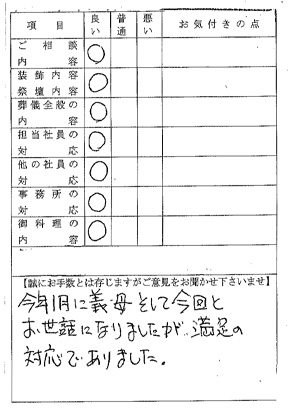 項目 良い 普通 悪い お気付きの点
ご相談内容 ○
装飾内容
祭壇内容 ○
葬儀全般の内容 ○
担当社員の対応 ○
他の社員の対応 ○
事務所の対応 ○
御料理の内容 ○
【誠にお手数とは存じますがご意見をお聞かせ下さいませ】
今年1月に義母そして今回と
お世話になりましたが、満足の
対応でありました。